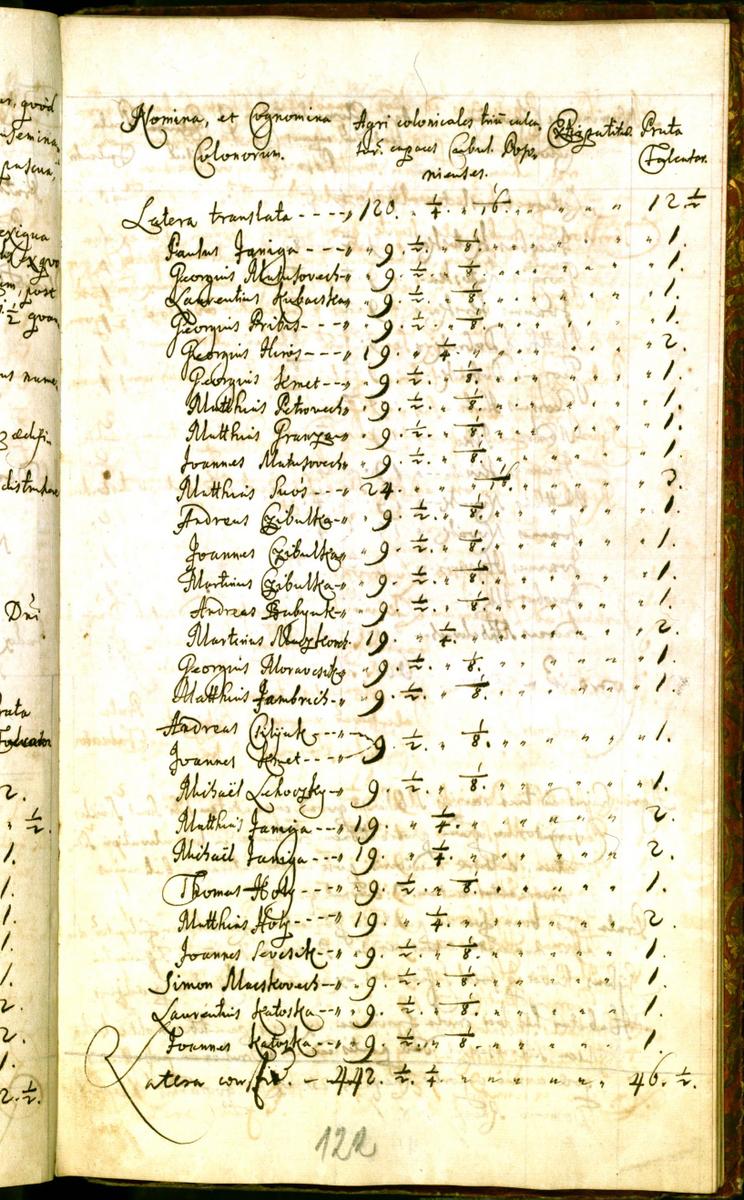 Nomina, et Cognomina Colonorum. Agri colonicales trium calca tur. capaces Cubul. Poso nienses. Extirpatitia Prata Falcator.
Latera translata - - - - „ 120. „ 1/4. „ 1/16. „ „ „ „ 12 1/2
Paulus Janiga - - - „ „ 9. 1/2. „ 1/8. „ „ „ „ „ 1.
Georgius Matusovech „ „ 9. 1/2. „ 1/8. „ „ „ „ „ 1.
Laurentius Hubacska „ „ 9. 1/2. „ 1/8. „ „ „ „ „ 1.
Georgius Bribis - - - „ „ 9. 1/2. „ 1/8. „ „ „ „ „ 1.
Georgius Hiros - - - „ 19. „ 1/4. „ „ „ „ „ „ 2.
Georgius Kmet - - - „ „ 9. 1/2. „ 1/8. „ „ „ „ „ 1.
Matthius Petrovech „ „ 9. 1/2. „ 1/8. „ „ „ „ „ 1.
Matthius Granza - „ „ 9. 1/2. „ 1/8. „ „ „ „ „ 1.
Joannes Matusovech „ „ 9. 1/2. „ 1/8. „ „ „ „ „ 1.
Matthius - - - „ 24. „ „ „ 1/16. „ „ „ „ 3.
Andreas Czibulka - „ „ 9. 1/2. „ 1/8. „ „ „ „ „ 1.
Joannes Czibulka „ „ 9. 1/2. „ 1/8. „ „ „ „ „ 1.
Martinus Czibulka - „ „ 9. 1/2. „ 1/8. „ „ „ „ „ 1.
Andreas Babyuk - „ „ 9. 1/2. „ 1/8. „ „ „ „ „ 1.
Martinus 19. „ 1/4. „ „ „ „ „ „ 2.
Georgius Moravcsik „ „ 9. 1/2. „ 1/8. „ „ „ „ „ 1.
Matthius Jambrich - „ „ 9. 1/2. „ 1/8. „ „ „ „ „ 1.
Andreas - - -
Joannes Kmet - - - 9. 1/2. „ 1/8. „ „ „ „ „ 1.
Michaël Lehoczky - „ 9. 1/2. „ 1/8. „ „ „ „ „ 1.
Matthius Janiga - - - „ 19. „ 1/4. „ „ „ „ „ „ 2.
Michaël Janiga - - - „ 19. „ 1/4. „ „ „ „ „ „ 2.
Thomas Holy - - - - „ „ 9. 1/2. „ 1/8. „ „ „ „ „ 1.
Matthius Holy - - - - „ 19. „ 1/4. „ „ „ „ „ „ 2.
Joannes Sevcsik - - „ „ 9. 1/2. „ 1/8. „ „ „ „ „ 1.
Simon Macskovech - „ „ 9. 1/2. „ 1/8. „ „ „ „ „ 1.
Laurentius Katoska - - „ „ 9. 1/2. „ 1/8. „ „ „ „ „ 1.
Joannes Katoska - - „ „ 9. 1/2. „ 1/8. „ „ „ „ „ 1.
Latera - 442. 1/2. 1/4. „ „ „ „ „ „ 46. 1/2.
122